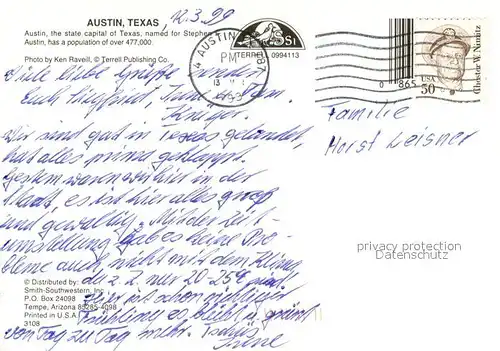 AUSTIN, TEXAS
12.3.99
Austin, the state capital of Texas, named for Stephen
Austin, has a population of over 477,000.
Photo by Ken Raveill, © Terrell Publishing Co.
TERRELL 0994113
AUSTIN
PM
13
0 865
USA
50
Chester W. Nimitz
Viele liebe Grüße
Euch, Siegfried,
Wir sind gut in Texas gelandet,
hat alles prima geklappt.
Gestern waren wir hier in der
Stadt, es ist hier alles groß
und gewaltig. Mit der Zeit-
umstellung gab es keine Pro-
bleme auch nicht mit dem Klima,
da z. Z. nur 20-25°
Hier ist schon richtiger
Frühling es blüht u. grünt
von Tag zu Tag mehr. Tschüs
Familie
Horst Leisner
privacy protection
Datenschutz
© Distributed by:
Smith-Southwestern, Inc.
P.O. Box 24098
Tempe, Arizona 85285-4098
Printed in U.S.A.
3108